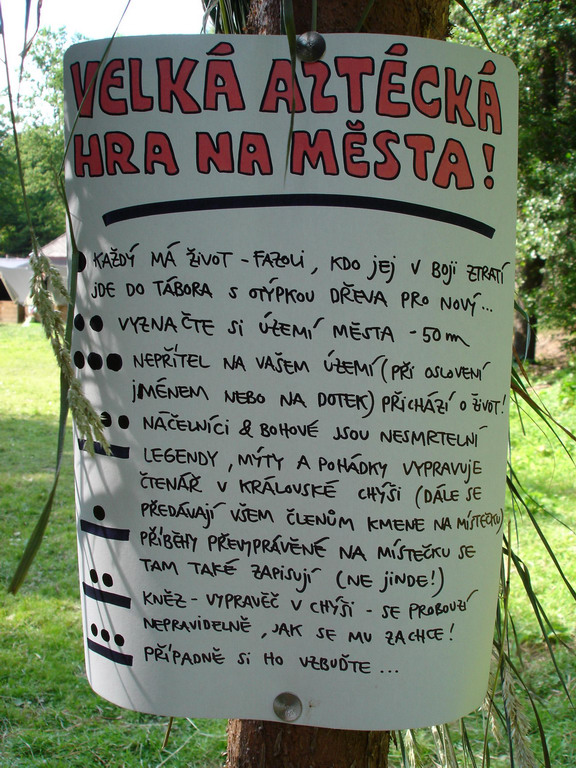 VELKÁ AZTÉCKÁ
HRA NA MĚSTA!
KAŽDÝ MÁ ŽIVOT - FAZOLI, KDO JEJ V BOJI ZTRATÍ
JDE DO TÁBORA S OTÝPKOU DŘEVA PRO NOVÝ...
VYZNAČTE SI ÚZEMÍ MĚSTA - 50m
NEPŘÍTEL NA VAŠEM ÚZEMÍ (PŘI OSLOVENÍ
JMÉNEM NEBO NA DOTEK) PŘICHÁZÍ O ŽIVOT!
NÁČELNÍCI & BOHOVÉ JSOU NESMRTELNÍ
LEGENDY, MÝTY A POHÁDKY VYPRAVUJE
ČTENÁŘ V KRÁLOVSKÉ CHÝŠI (DÁLE SE
PŘEDÁVAJÍ VŠEM ČLENŮM KMENE NA MÍSTEČKU)
PŘÍBĚHY PŘEVYPRÁVĚNÉ NA MÍSTEČKU SE
TAM TAKÉ ZAPISUJÍ (NE JINDE!)
KNĚZ - VYPRAVĚČ V CHÝŠI - SE PROBOUZÍ
NEPRAVIDELNĚ, JAK SE MU ZACHCE!
PŘÍPADNĚ SI HO VZBUĎTE...